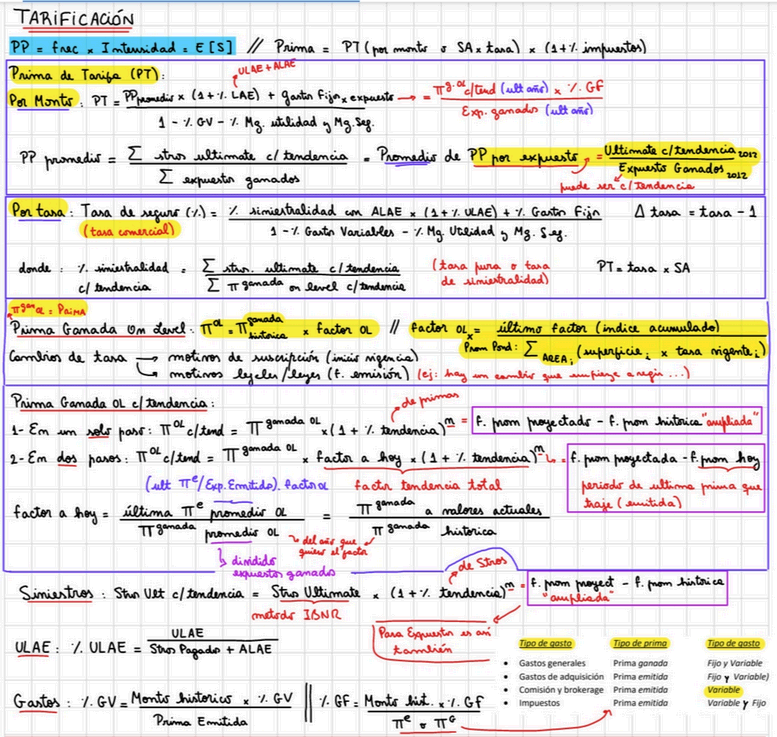 TARIFICACIÓN
PP = frec × Intensidad = E[S] // Prima = PT (por monto o SA × tasa) × (1+% impuestos)
Prima de Tarifa (PT):
ULAE + ALAE
Por Monto: PT = PP promedio × (1+% LAE) + gastos Fijos × expuesto → = π g.OL c/tend (ult año) × % GF
1 - % GV - % Mg. utilidad y Mg. Seg.
Exp. ganados (ult año)
PP promedio = Σ stros ultimate c/tendencia = Promedio de PP por expuesto = Ultimate c/tendencia 2012
Σ expuesto ganados
Expuesto Ganados 2012
puede ser c/tendencia
Por tasa: Tasa de seguro (%) = % siniestralidad con ALAE × (1+% ULAE) + % Gastos Fijos Δ tasa = tasa - 1
(tasa comercial) 1 - % Gastos Variables - % Mg. Utilidad y Mg. Seg.
donde: % siniestralidad = Σ stros. ultimate c/tendencia (tasa pura o tasa PT = tasa × SA
c/tendencia Σ π ganada on level c/tendencia de siniestralidad)
π gan OL = PRIMA
Prima Ganada On Level: π OL = π ganada historica × factor OL // factor OL x = último factor (indice acumulado)
Prom Pond: Σ AREA i (superficie i × tasa vigente i)
Cambios de tasa → motivos de suscripción (inicio vigencia)
↳ motivos legales/leyes (f. emisión) (ej: hay un cambio que empieza a regir ...)
Prima Ganada OL c/tendencia:
de primas
1- En un solo paso: π OL c/tend = π ganada OL × (1 + % tendencia)^m = f. prom proyectado - f. prom historica "ampliada"
2- En dos pasos: π OL c/tend = π ganada OL × factor a hoy × (1 + % tendencia)^m ↳ = f. prom proyectada - f. prom hoy
(ult π e/Exp. Emitido). factor OL factor tendencia total
periodo de ultima prima que
traje (emitida)
factor a hoy = última π e promedio OL = π ganada a valores actuales
π ganada promedio OL π ganada historica
del año que
quiero el factor
↳ dividido
expuestos ganado
de Stros
Siniestros: Stro Ult c/tendencia = Stro Ultimate × (1 + % tendencia)^m = f. prom proyect - f. prom historica
"ampliada"
metodo IBNR
Para Expuesto es así
también
ULAE: % ULAE = ULAE
Stro Pagado + ALAE
Tipo de gasto Tipo de prima Tipo de gasto
• Gastos generales Prima ganada Fijo y Variable
• Gastos de adquisición Prima emitida Fijo y Variable)
• Comisión y brokerage Prima emitida Variable
• Impuestos Prima emitida Variable y Fijo
Gastos: % GV = Monto historico × % GV || % GF = Monto hist. × % GF
Prima Emitida π e o π G